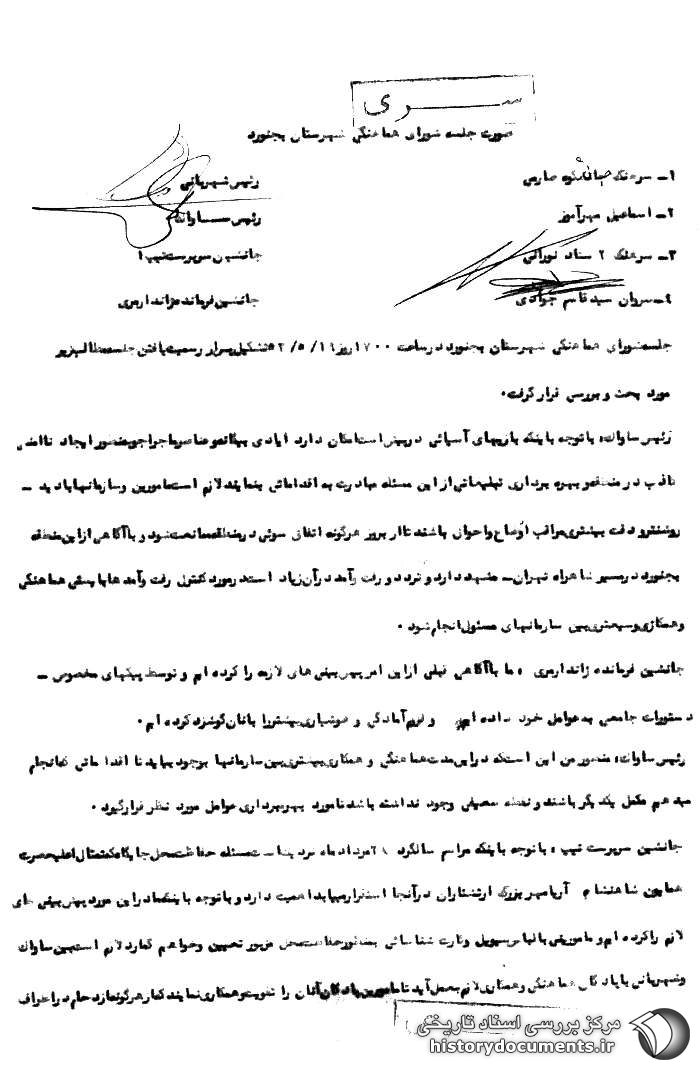 سری
صورت جلسه شورای هماهنگی شهرستان بجنورد
۱ــ سرهنگ صارمی رئیس شهربانی
۲ــ اسماعیل مهرآموز رئیس ساواک
۳ــ سرهنگ ۲ ستاد نورائی جانشین سرپرست تیپ ۱
٤ــ سروان سید قاسم جوادی جانشین فرمانده ژاندارمری
جلسه شورای هماهنگی شهرستان بجنورد در ساعت ۱۷۰۰ روز تشکیل پس از رسمیت یافتن جلسه مطالب زیر
مورد بحث و بررسی قرار گرفت.
رئیس ساواک: با توجه باینکه بازیهای آسیائی در پیش است امکان دارد ایادی بیگانه و عناصر ماجراجو بمنظور ایجاد ناامنی
در منطقه و بهره برداری تبلیغاتی از این مسئله مبادرت به اقداماتی بنمایند لازم است مامورین و سازمانها با دید ــ
روشنتر و دقت بیشتری مراقب اوضاع و احوال باشند تا از بروز هرگونه اتفاق سوئی در منطقه ممانعت شود و با آگاهی از این منطقه
بجنورد در مسیر شاهراه تهران ــ مشهد دارد و تردد و رفت و آمد در آن زیاد است در مورد کنترل رفت و آمدها بایستی هماهنگی
و همکاری وسیعتری بین سازمانهای مسئول انجام شود.
جانشین فرمانده ژاندارمری: ما با آگاهی قبلی از این امر پیش بینی های لازمه را کرده ایم و توسط پیکهای مخصوص ــ
دستورات جامعی به عوامل خود داده ایم و لزوم آمادگی و هوشیاری بیشتر را بآنان گوشزد کرده ایم.
رئیس ساواک: منظور من این است که در این مدت هماهنگی و همکاری بیشتری بین سازمانها بوجود بیاید تا اقداماتی که انجام
میدهیم مکمل یکدیگر باشند و نقطه ضعیفی وجود نداشته باشد تا مورد بهره برداری عوامل مورد نظر قرار گیرد.
جانشین سرپرست تیپ: با توجه باینکه مراسم سالگرد ۲۸ مرداد ماه نزدیک است مسئله حفاظت محل جایگاه که تمثال اعلیحضرت
همایون شاهنشاه آریامهر بزرگ ارتشتاران در آنجا استقرار مییابد اهمیت دارد و با توجه باینکه ما در این مورد پیش بینی های
لازم را کرده ایم و مامورینی با لباس سیویل و کارت شناسائی بمنظور حفاظت محل مزبور تعیین و خواهیم گمارد لازم است بین ساواک
و شهربانی با پادگان هماهنگی و همکاری لازم بعمل آید تا مامورین پادگان آنان را تقویت و همکاری نمایند که از هرگونه ازدحام در اطراف
مرکز بررسی اسناد تاریخی
historydocuments.ir